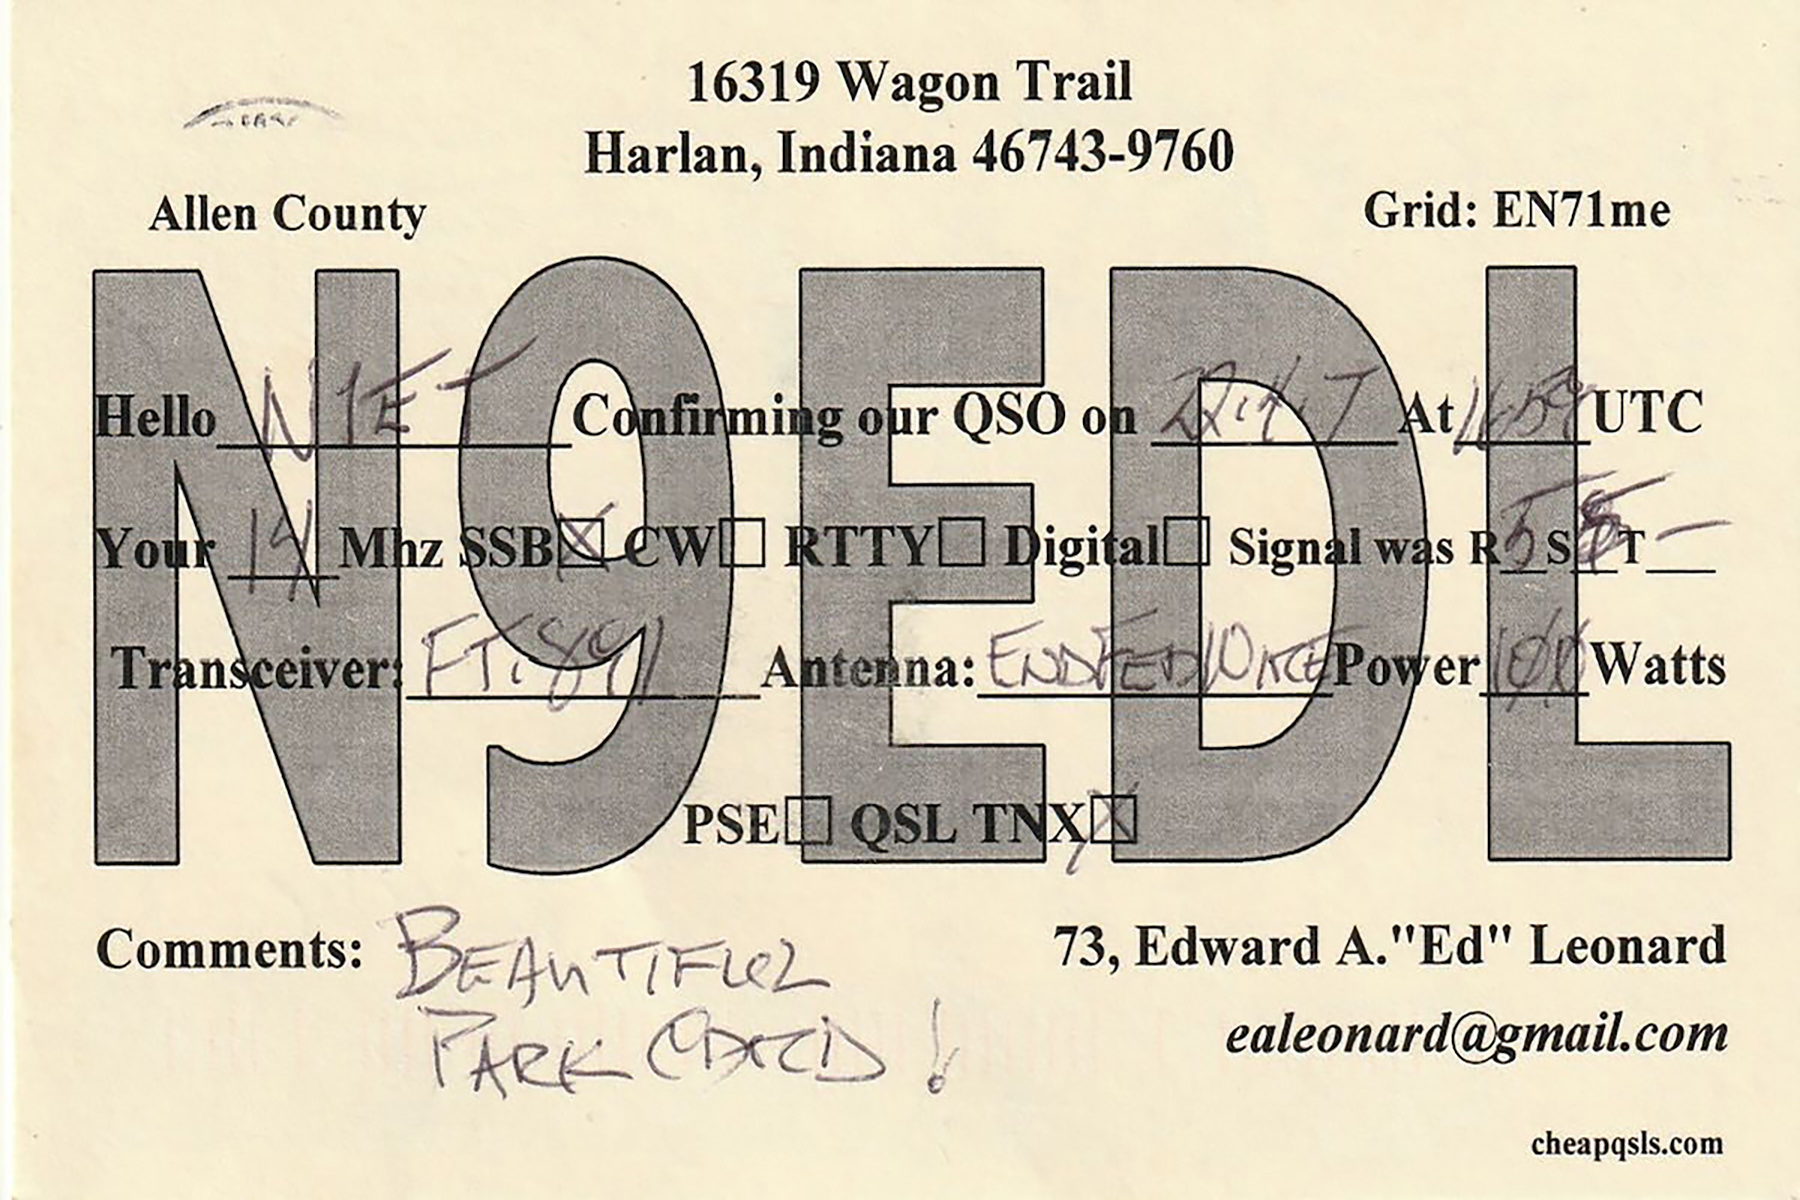 16319 Wagon Trail
Harlan, Indiana 46743-9760
Allen County
Grid: EN71me
N9EDL
Hello N1ET Confirming our QSO on 22.4.7 At UTC
Your 14 Mhz SSB X CW RTTY Digital Signal was R 5 S T -
Transceiver: FT.891 Antenna: ENDFED WIRE Power 100 Watts
PSE QSL TNX X
Comments: BEAUTIFUL
PARK CARD!
73, Edward A."Ed" Leonard
ealeonard@gmail.com
cheapqsls.com